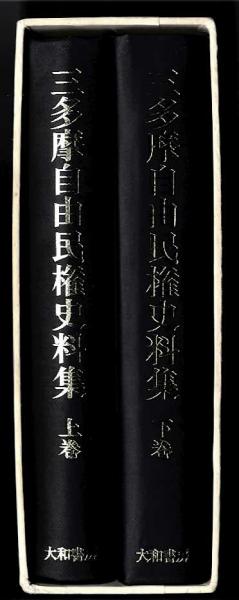 三多摩自由民権史料集 上巻
大和書房
三多摩自由民権史料集 下巻
大和書房